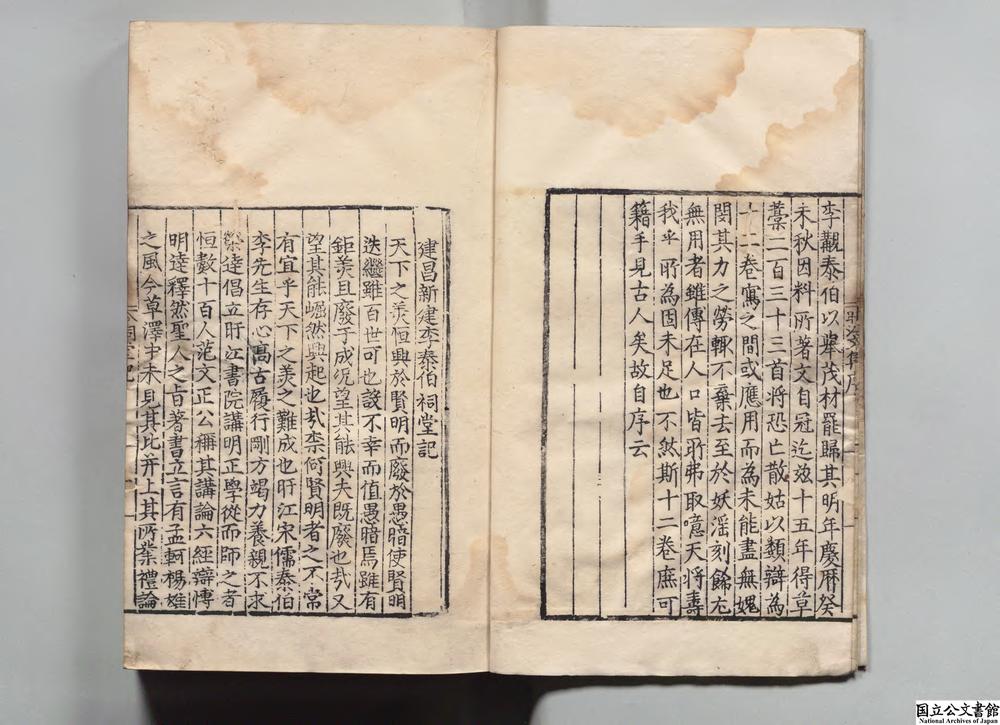 李覯泰伯以舉茂材罷歸其明年慶曆癸
未秋因料所著文自冠迄玆十五年得草
藁二百三十三首將恐亡散姑以類辯為
十二卷寫之間或應用而為未能盡無媿
閔其力之勞輒不棄去至於妖滛刻飾尤
無用者雖傳在人口皆所弗取噫天將壽
我乎所為固未足也不然斯十二卷庶可
籍手見古人矣故自序云
建昌新建李泰伯祠堂記
天下之美恒興於賢明而廢於愚暗使賢明
迭繼雖百世可也設不幸而值愚暗焉雖有
鉅美且廢于成況望其能興夫既廢也㢤又
望其能崛然興起也㢤柰何賢明者之不常
有宜乎天下之美之難成也盱江宋儒泰伯
李先生存心寓古履行剛方竭力養親不求
榮達倡立盱江書院講明正學從而師之者
恒數十百人范文正公稱其講論六經辯博
明達釋然聖人之旨著書立言有孟軻楊雄
之風今草澤中未見其比并上其所業禮論
国立公文書館
National Archives of Japan